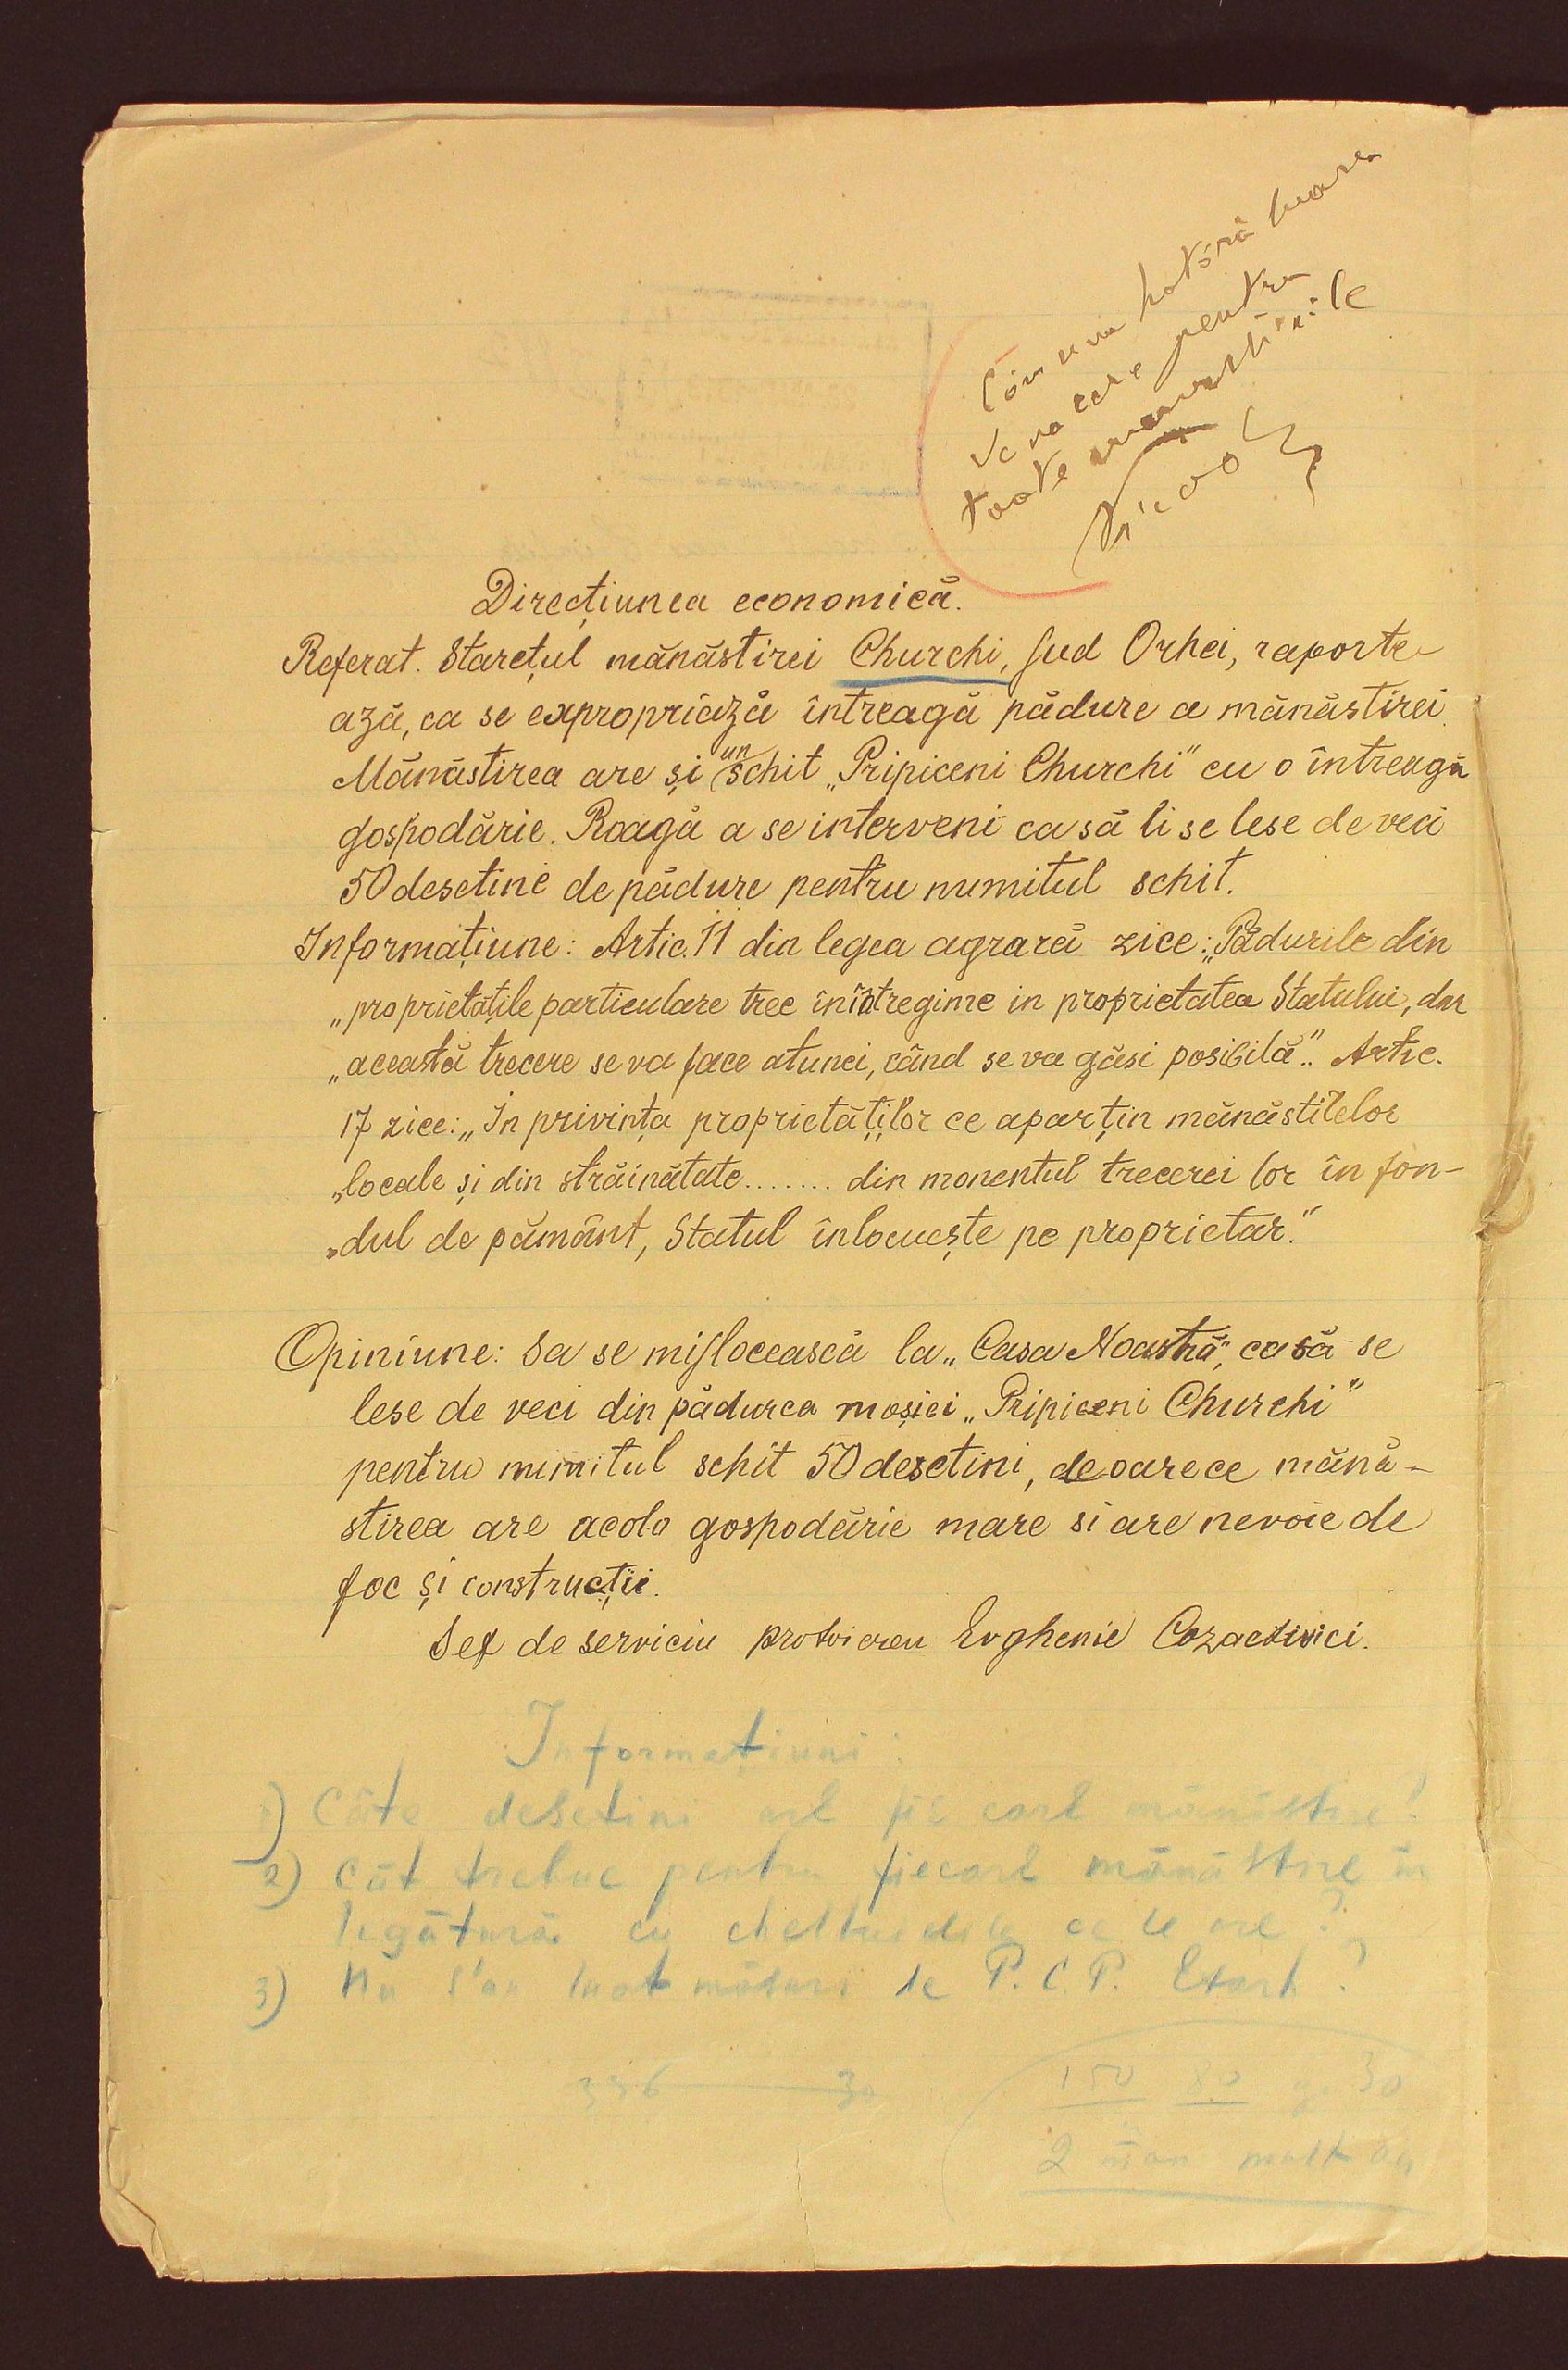 hotărâ luarea
se va cere pentru
toate manastirile
Direcțiunea economică.
Referat. Starețul mănăstirei Churchi, Jud Orhei, raporte-
ază, ca se expropriază întreagă pădure a mănăstirei.
Mănăstirea are și un schit „Pripiceni Churchi" cu o întreagă
gospodărie. Roagă a se interveni ca să li se lese de veci
50 desetine de pădure pentru numitul schit.
Informațiune: Artic. 11 din legea agrară zice: „Pădurile din
„proprietățile particulare trec în întregime in proprietatea Statului, dar
„această trecere se va face atunci, când se va găsi posibilă". Artic.
17 zice: „In privința proprietăților ce aparțin mănăstirelor
„locale și din străinătate....... din monentul trecerei lor în fon-
„dul de pământ, Statul înlocuește pe proprietar."
Opiniune: Sa se mijlocească la „Casa Noastră", ca să se
lese de veci din pădurea moșiei „Pripiceni Churchi"
pentru numitul schit 50 desetini, deoarece mănă-
stirea are acolo gospodărie mare si are nevoie de
foc și construcții.
Sef de serviciu protoiereu Evghenie
Informațiuni:
1) Câte desetini are fie care mănăstire?
2) Cât trebue pentru fiecare mănăstire în
legătură cu cheltuelile ce le are?
3) Nu s'au luat măsuri de P. C. P. Exarh?
396 — 30
150 80 30
2 man mult